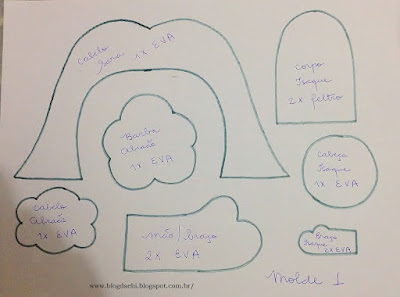 Cabelo
Sara 1x EVA
Corpo
Isaque
2x feltro
Barba
Abraão
1x EVA
Cabeça
Isaque
1x EVA
Cabelo
Abraão
1x EVA
mão/braço
2x EVA
Braço
Isaque
2x EVA
Molde 1
www.blogdaebi.blogspot.com.br/